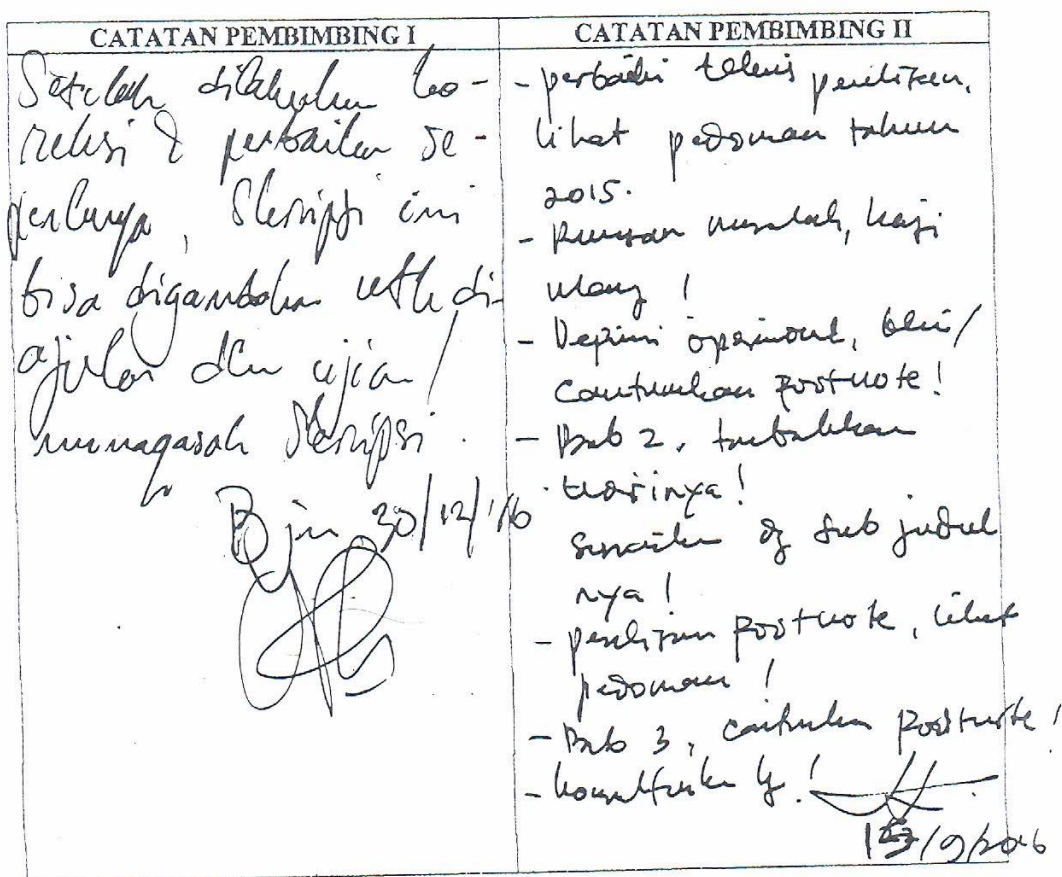 CATATAN PEMBIMBING I
Setelah dilakukan ko-
reksi & perbaikan se-
perlunya, Skripsi ini
bisa digandakan utk di-
ajukan dlm ujian/
munaqasah Skripsi.
Bjm 30/12/'16
CATATAN PEMBIMBING II
- perbaiki teknis penulisan,
lihat pedoman tahun
2015.
- Rumusan masalah, kaji
ulang!
- Depinisi operasional, beri/
cantumkan footnote!
- Bab 2, tambahkan
teorinya!
Sesuaikan dg sub judul
nya!
- penulisan footnote, lihat
pedoman!
- Bab 3, cantumkan footnote!
- konsultasikan lg!
/9/2016